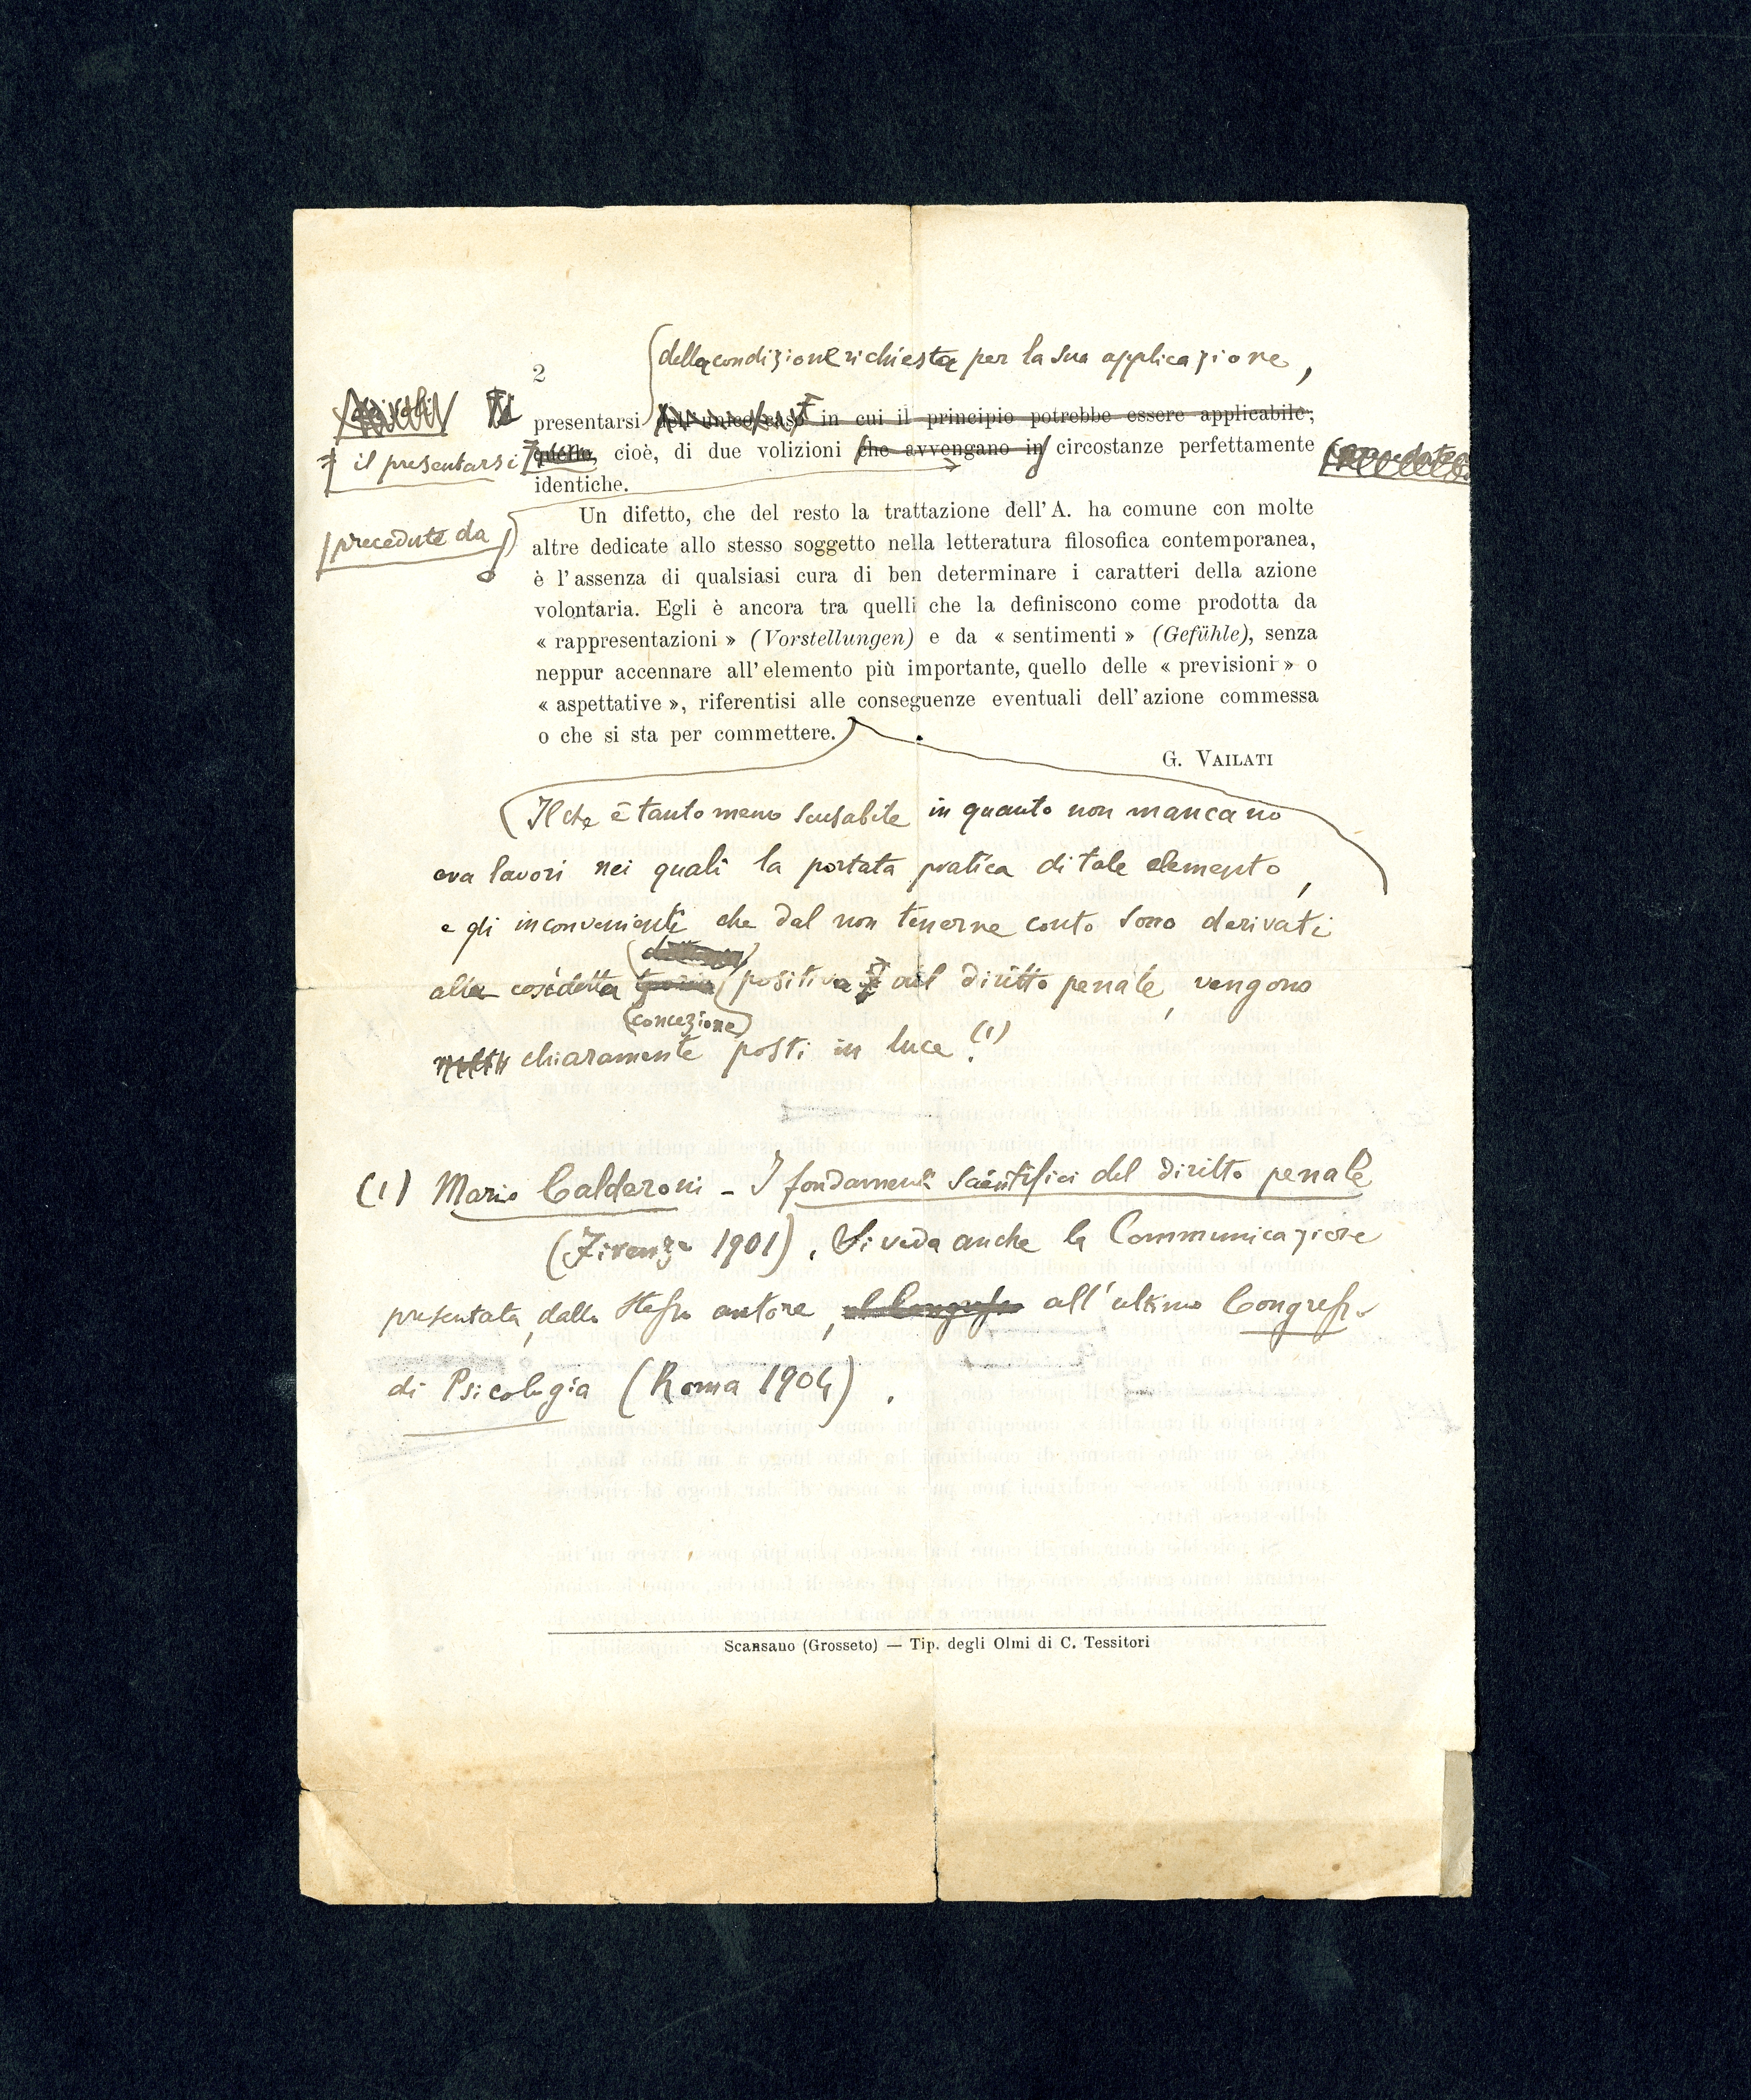 della condizione richiesta per la sua applicazione,
2
presentarsi dell'unico caso in cui il principio potrebbe essere applicabile;
il presentarsi
quello, cioè, di due volizioni che avvengano in circostanze perfettamente
identiche.
precedute da
Un difetto, che del resto la trattazione dell'A. ha comune con molte
altre dedicate allo stesso soggetto nella letteratura filosofica contemporanea,
è l'assenza di qualsiasi cura di ben determinare i caratteri della azione
volontaria. Egli è ancora tra quelli che la definiscono come prodotta da
« rappresentazioni » (Vorstellungen) e da « sentimenti » (Gefühle), senza
neppur accennare all'elemento più importante, quello delle « previsioni » o
« aspettative », riferentisi alle conseguenze eventuali dell'azione commessa
o che si sta per commettere.
G. VAILATI
Il che è tanto meno scusabile in quanto non mancano
ora lavori nei quali la portata pratica di tale elemento,
e gli inconvenienti che dal non tenerne conto sono derivati
alla cosidetta positiva del diritto penale, vengono
(concezione)
chiaramente posti in luce.(1)
(1) Mario Calderoni - I fondamenti scientifici del diritto penale
(Firenze 1901). Si veda anche la Communicazione
presentata, dallo stesso autore, al Congresso all'ultimo Congresso
di Psicologia (Roma 1904).
Scansano (Grosseto) — Tip. degli Olmi di C. Tessitori